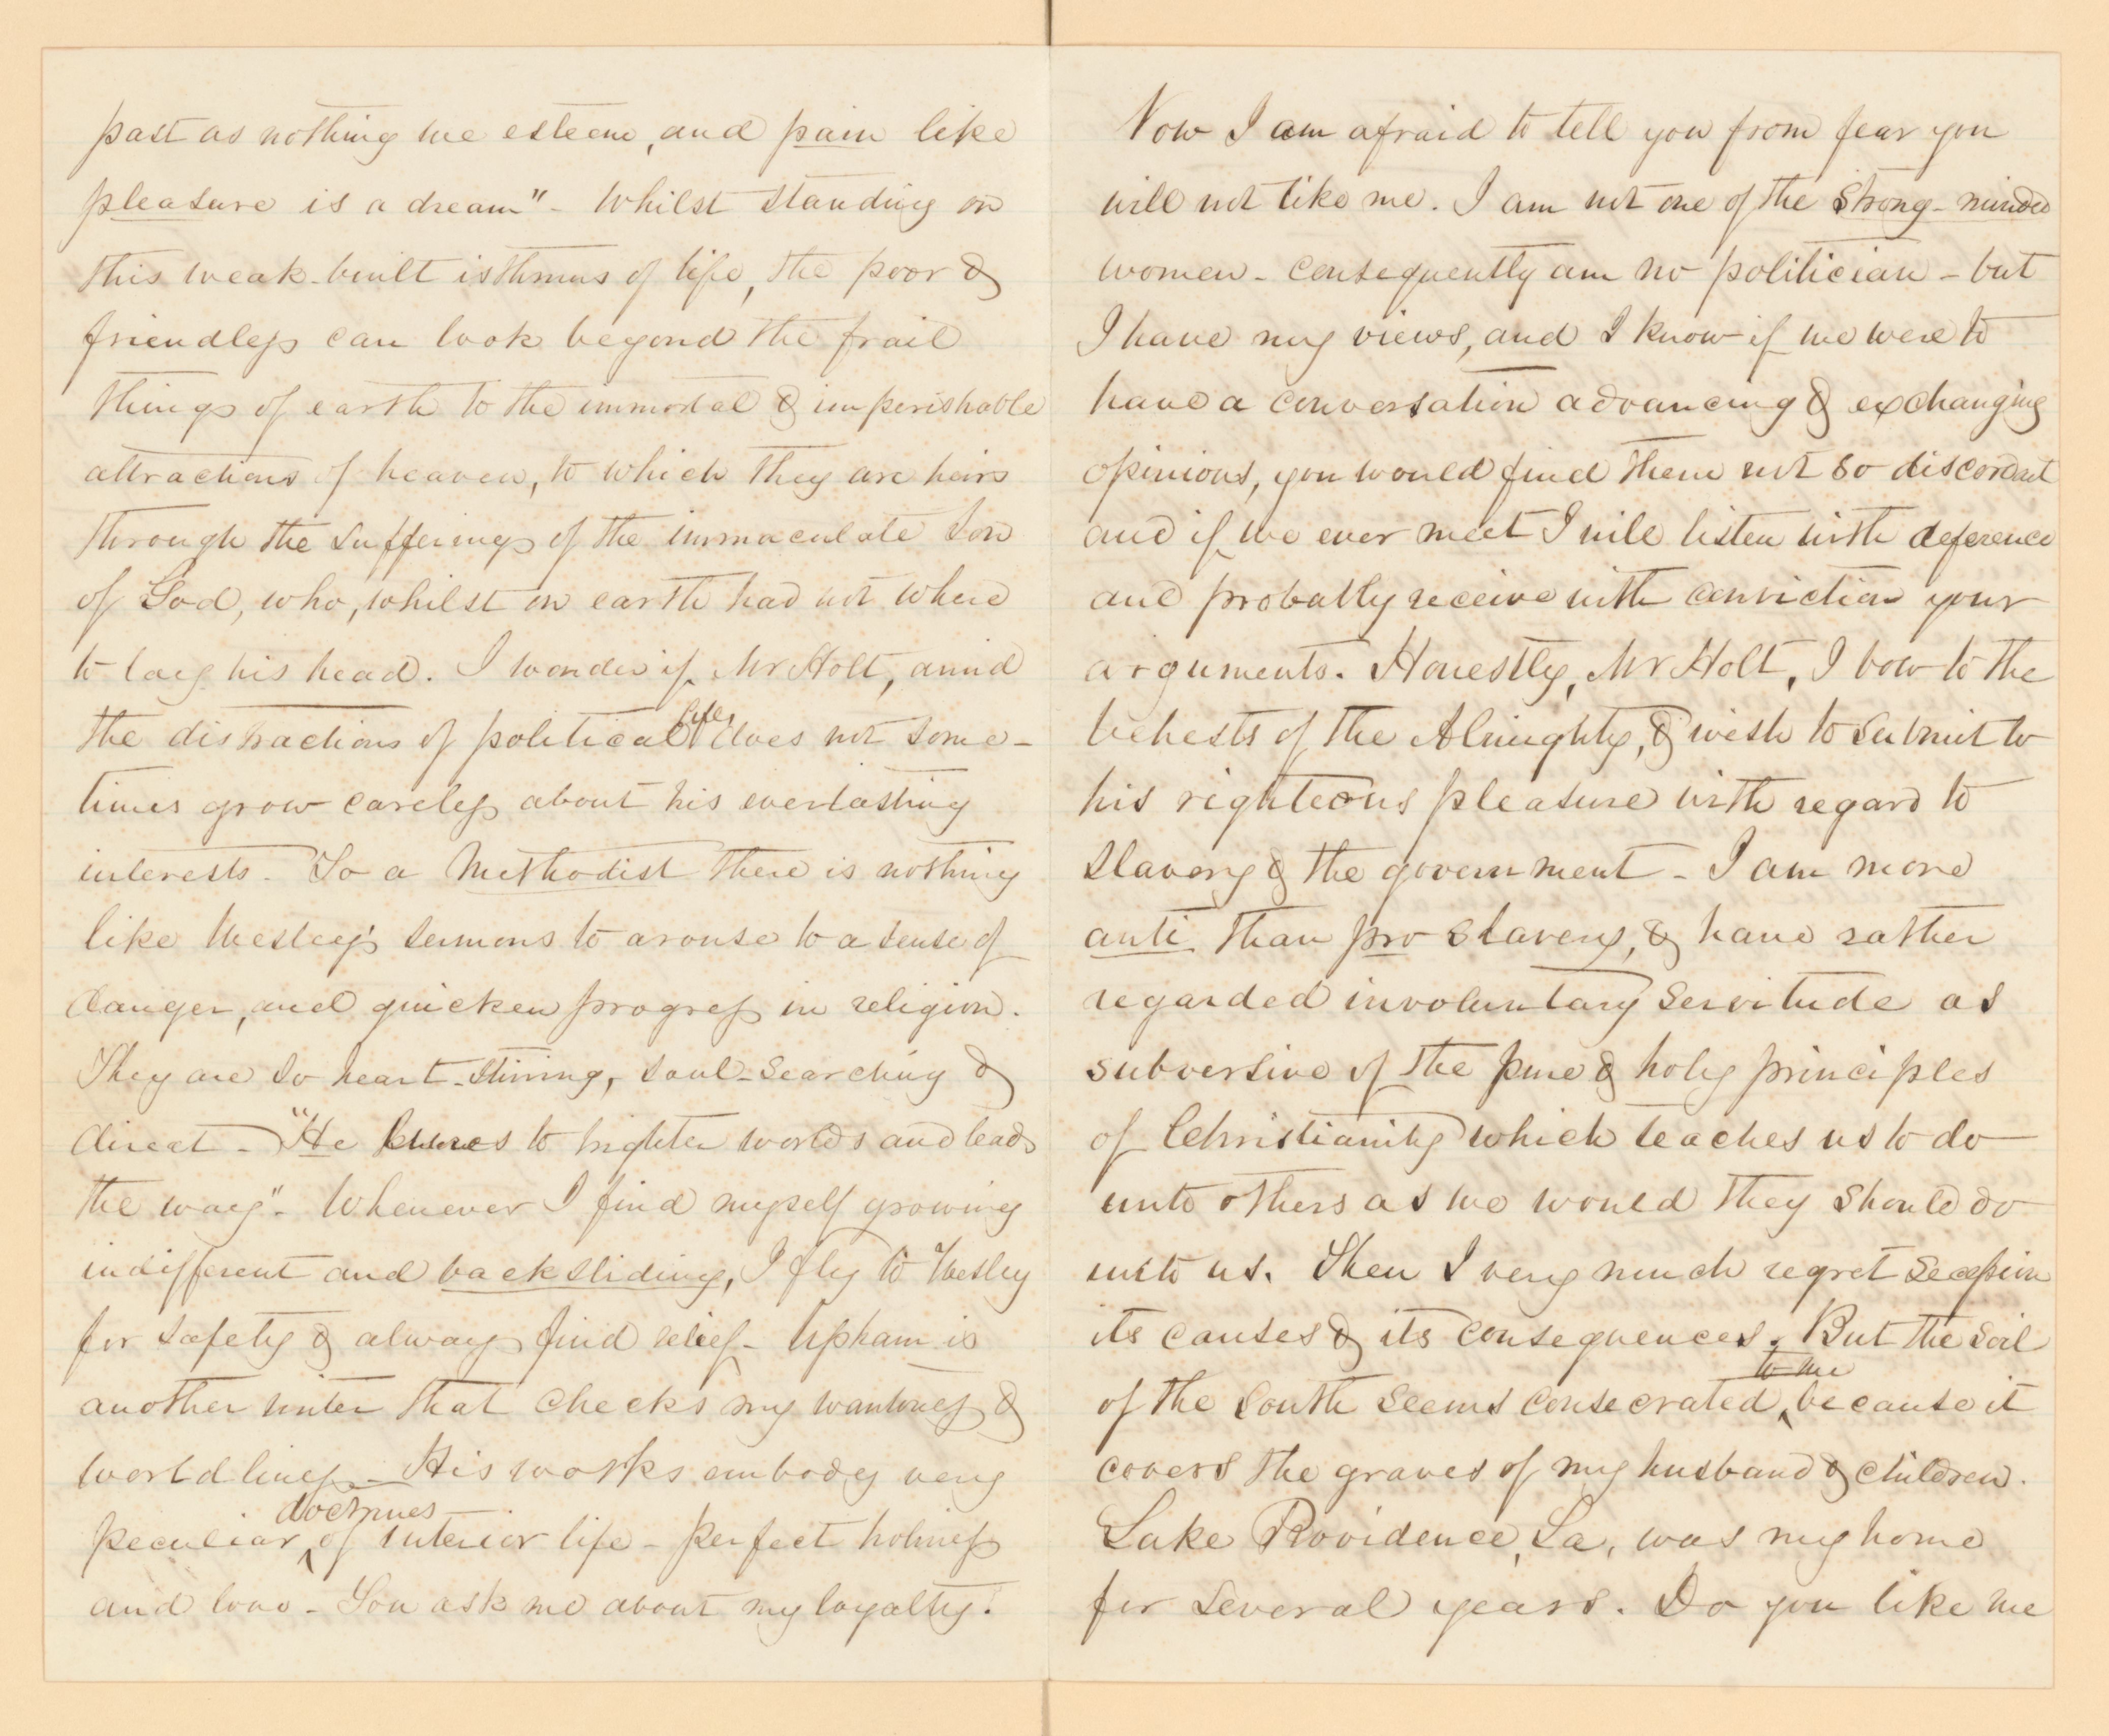 past as nothing we esteem, and pain like
pleasure is a dream" - Whilst standing on
this weak-built isthmus of life, the poor &
friendless can look beyond the frail
things of earth to the immortal & imperishable
attractions of heaven, to which they are heirs
through the sufferings of the immaculate Son
of God, who, whilst on earth had not where
to lay his head. I wonder if Mr Holt, amid
the distractions of political life, does not some-
times grow careless about his everlasting
interests. To a Methodist there is nothing
like Wesley's sermons to arouse to a sense of
danger, and quicken progress in religion.
They are so heart-stirring, soul-searching &
direct - "He lures to brighter worlds and leads
the way" - Whenever I find myself growing
indifferent and backsliding, I fly to Wesley
for safety & always find relief - Upham is
another writer that checks my wantoness &
worldliness - His works embody very
peculiar doctrines of interior life - perfect holiness
and love - You ask me about my loyalty.
Now I am afraid to tell you from fear you
will not like me. I am not one of the strong-minded
women - consequently am no politician - but
I have my views, and I know if we were to
have a conversation advancing & exchanging
opinions, you would find them not so discordant
and if we ever meet I will listen with deference
and probably receive with conviction your
arguments. Honestly, Mr Holt, I bow to the
behests of the Almighty, & wish to submit to
his righteous pleasure with regard to
slavery & the government - I am more
anti than pro slavery, & have rather
regarded involuntary servitude as
subversive of the pure & holy principles
of Christianity which teaches us to do
unto others as we would they should do
unto us. Then I very much regret secession
its causes & its consequences. But the soil
of the South seems consecrated to me because it
covers the graves of my husband & children.
Lake Providence, La, was my home
for several years. Do you like me